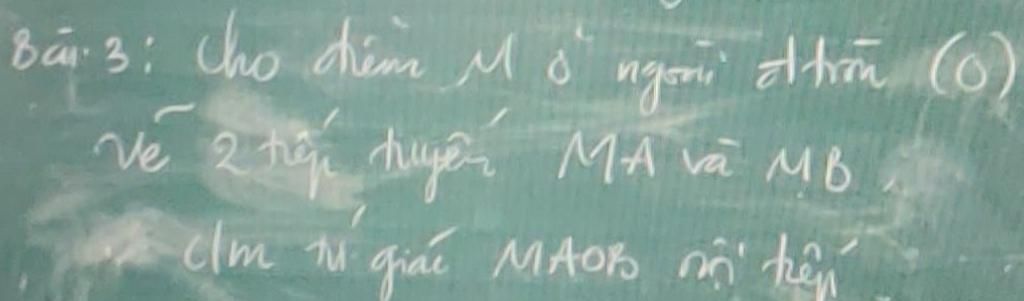 Bài 3: Cho điểm M ở ngoài đtròn (O)
Vẽ 2 tiếp tuyến MA và MB.
c/m tứ giác MAOB nội tiếp